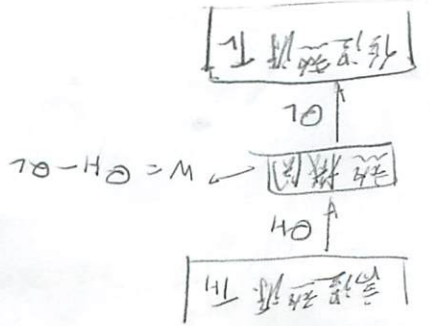 高温热源 TH
QH
热机 W = QH - QL
QL
低温热源 TL